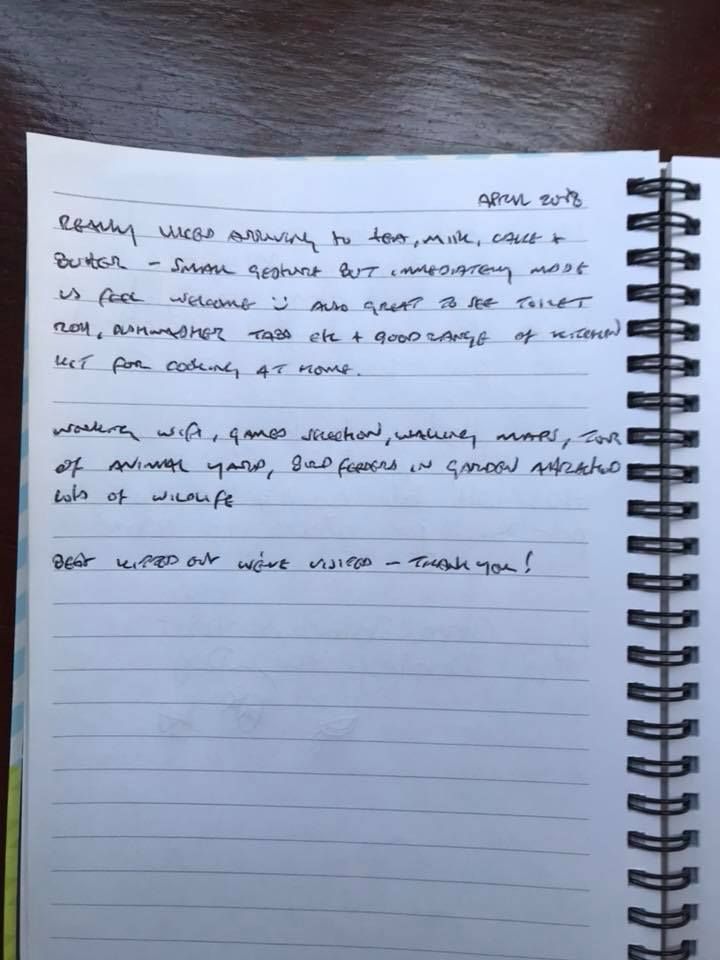 APRIL 2018
REALLY LIKED ARRIVING TO TEA, MILK, CAKE +
BUTTER - SMALL GESTURE BUT IMMEDIATELY MADE
US FEEL WELCOME :) ALSO GREAT TO SEE TOILET
ROLL, DISHWASHER TABS ETC + GOOD RANGE OF KITCHEN
KIT FOR COOKING AT HOME.
WORKING WIFI, GAMES SELECTION, WALKING MAPS, TOUR
OF ANIMAL YARD, BIRD FEEDERS IN GARDEN ATTRACTED
LOTS OF WILDLIFE
BEST KITTED OUT WE'VE VISITED - THANK YOU!